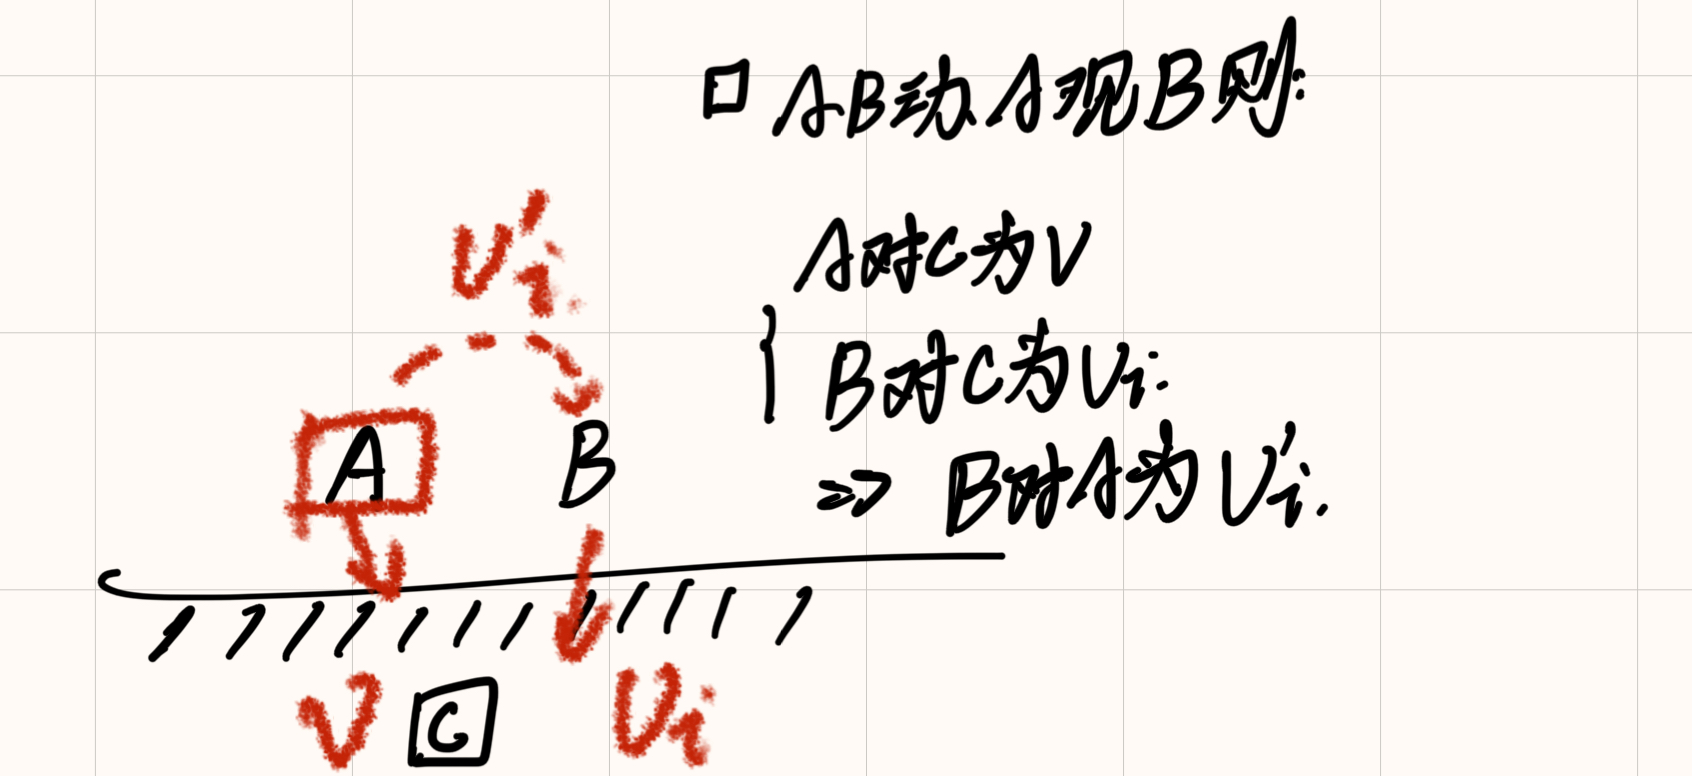 AB动A观B则:
A对C为V
B对C为Ui.
⇒ B对A为U'i.
U'i
A
B
V
C
Ui